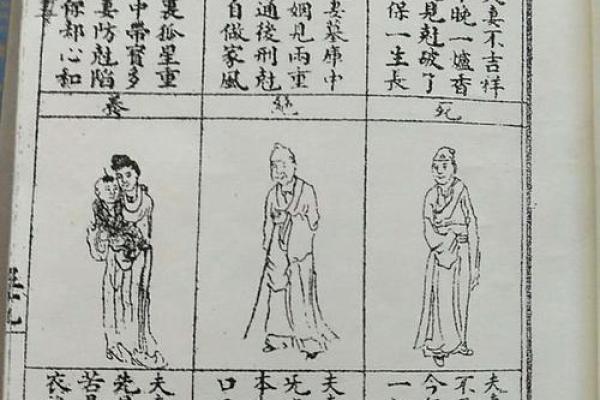 妻不吉祥
晚一爐香
見尅破了
保一生長
妻墓庫中
姻見兩重
通後刑尅
自做家風
裏孤星重
中帶寳多
妻防尅陷
保却心和
死
絕
養
夫妻
不
今
一
夫妻
本
口
夫
先
苦
衣